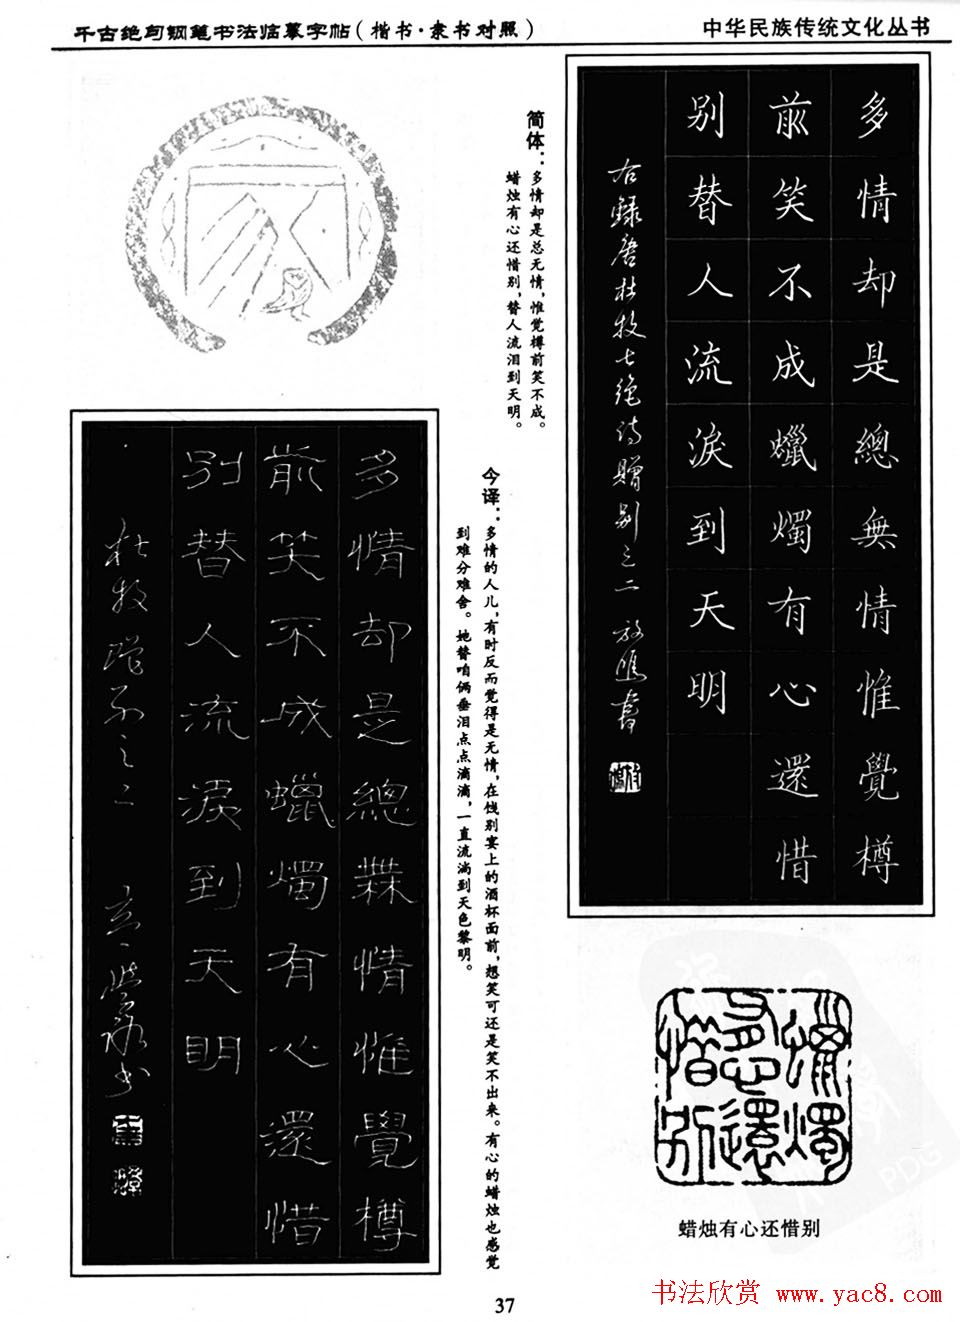 千古绝句钢笔书法临摹字帖(楷书·隶书对照)
中华民族传统文化丛书
多情却是總無情惟覺樽
前笑不成蠟燭有心還惜
别替人流淚到天明
右録唐杜牧七绝诗赠别之二
简体:多情却是总无情,惟觉樽前笑不成。
蜡烛有心还惜别,替人流泪到天明。
今译:多情的人儿,有时反而觉得是无情,在饯别宴上的酒杯面前,想笑可还是笑不出来。有心的蜡烛也感觉
到难分难舍。她替咱俩垂泪点点滴滴,一直流淌到天色黎明。
多情却是總無情惟覺樽
前笑不成蠟燭有心還惜
别替人流淚到天明
杜牧赠别之二
蜡烛有心还惜别
37
书法欣赏 www.yac8.com
PDG